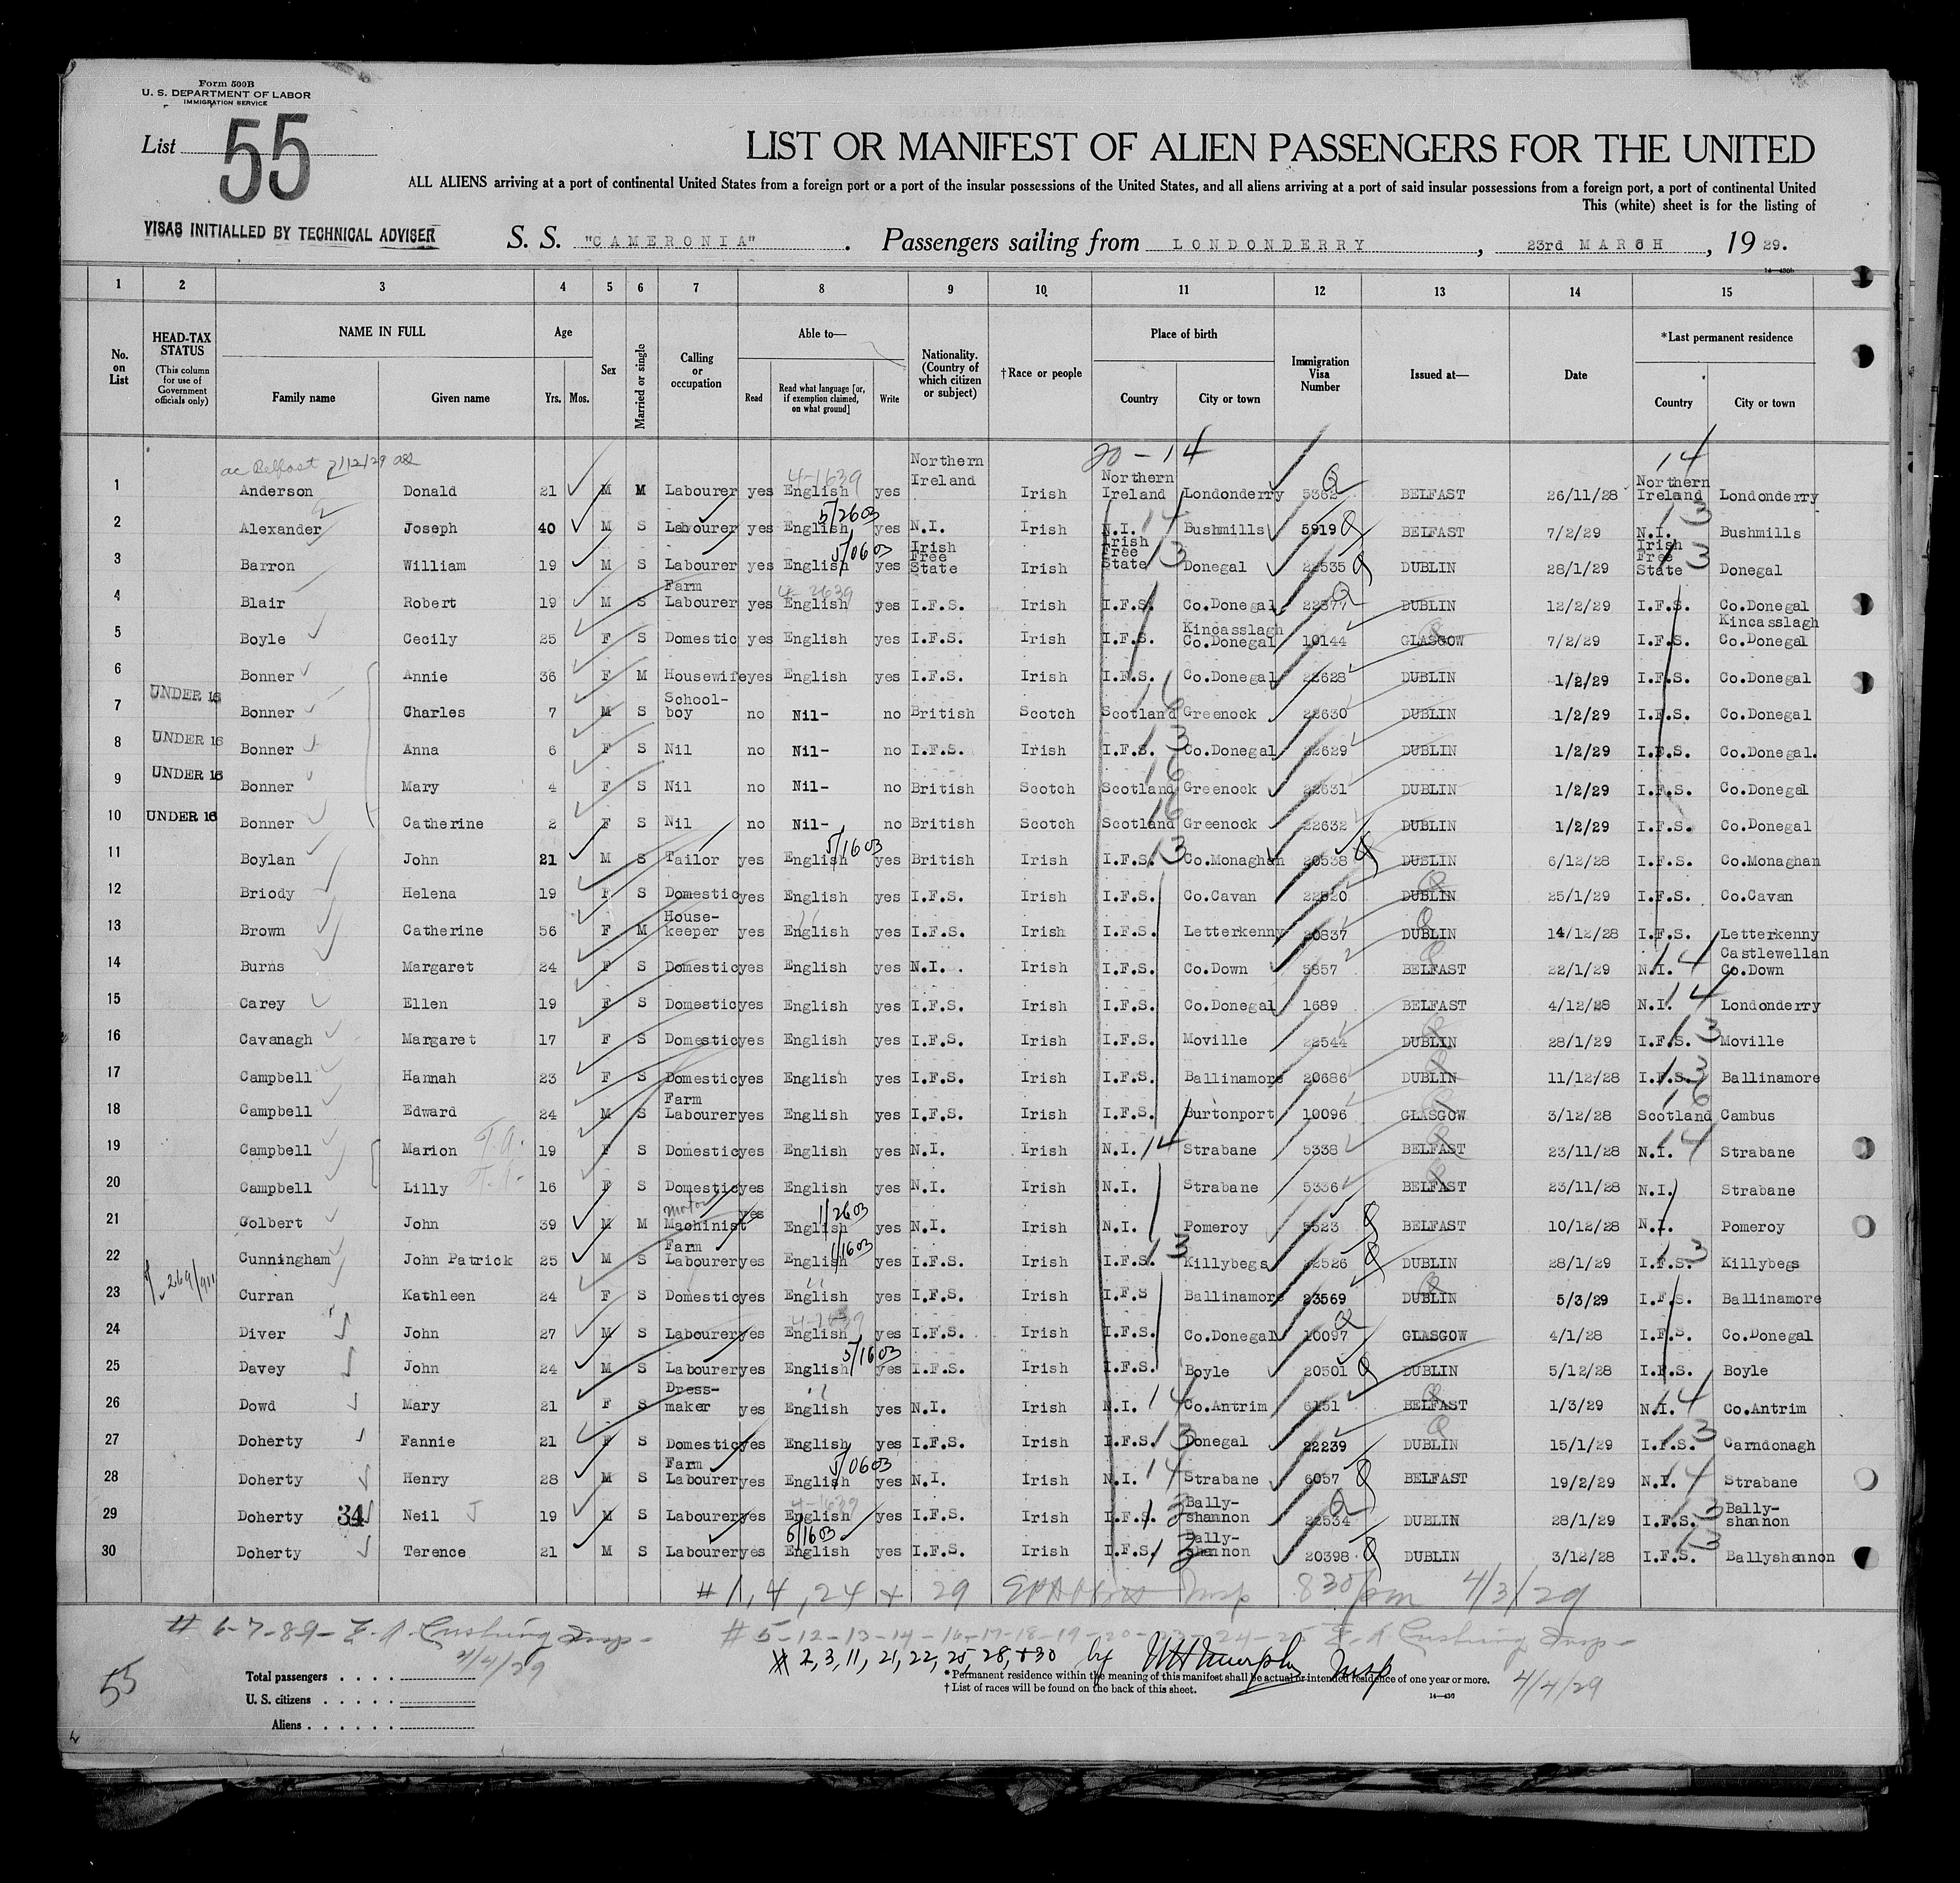 Form 500B
U. S. DEPARTMENT OF LABOR
IMMIGRATION SERVICE
List 55
LIST OR MANIFEST OF ALIEN PASSENGERS FOR THE UNITED
ALL ALIENS arriving at a port of continental United States from a foreign port or a port of the insular possessions of the United States, and all aliens arriving at a port of said insular possessions from a foreign port, a port of continental United
This (white) sheet is for the listing of
VISAS INITIALLED BY TECHNICAL ADVISER
S. S. "CAMERONIA" . Passengers sailing from LONDONDERRY , 23rd MARCH , 19 29.
14—430b
1 2 3 4 5 6 7 8 9 10 11 12 13 14 15
No. on List
HEAD-TAX STATUS (This column for use of Government officials only)
NAME IN FULL Family name Given name
Age Yrs. Mos.
Sex
Married or single
Calling or occupation
Able to— Read Read what language [or, if exemption claimed, on what ground] Write
Nationality. (Country of which citizen or subject)
†Race or people
Place of birth Country City or town
Immigration Visa Number
Issued at—
Date
*Last permanent residence Country City or town
ac Belfast 2/12/29 4-1639 20-14 14
1 Anderson Donald 21 M M Labourer yes English yes Northern Ireland Irish Northern Ireland Londonderry 5362 BELFAST 26/11/28 Northern Ireland Londonderry
5/2603 14 13
2 Alexander Joseph 40 M S Labourer yes English yes N.I. Irish N.I. Bushmills 5919 BELFAST 7/2/29 N.I. Bushmills
5/0603 13 13
3 Barron William 19 M S Labourer yes English yes Irish Free State Irish Irish Free State Donegal 22535 DUBLIN 28/1/29 Irish Free State Donegal
4-2639
4 Blair Robert 19 M S Farm Labourer yes English yes I.F.S. Irish I.F.S. Co.Donegal 22377 DUBLIN 12/2/29 I.F.S. Co.Donegal
5 Boyle Cecily 25 F S Domestic yes English yes I.F.S. Irish I.F.S. Kincasslagh Co.Donegal 10144 GLASGOW 7/2/29 I.F.S. Kincasslagh Co.Donegal
6 Bonner Annie 36 F M Housewife yes English yes I.F.S. Irish I.F.S. Co.Donegal 22628 DUBLIN 1/2/29 I.F.S. Co.Donegal
7 UNDER 16 Bonner Charles 7 M S School-boy no Nil- no British Scotch Scotland 16 Greenock 22630 DUBLIN 1/2/29 I.F.S. Co.Donegal
8 UNDER 16 Bonner Anna 6 F S Nil no Nil- no I.F.S. Irish I.F.S. 13 Co.Donegal 22629 DUBLIN 1/2/29 I.F.S. Co.Donegal.
9 UNDER 16 Bonner Mary 4 F S Nil no Nil- no British Scotch Scotland 16 Greenock 22631 DUBLIN 1/2/29 I.F.S. Co.Donegal
10 UNDER 16 Bonner Catherine 2 F S Nil no Nil- no British Scotch Scotland 16 Greenock 22632 DUBLIN 1/2/29 I.F.S. Co.Donegal
5/1603
11 Boylan John 21 M S Tailor yes English yes British Irish I.F.S. 13 Co.Monaghan 20538 DUBLIN 6/12/28 I.F.S. Co.Monaghan
12 Briody Helena 19 F S Domestic yes English yes I.F.S. Irish I.F.S. Co.Cavan 22520 DUBLIN 25/1/29 I.F.S. Co.Cavan
13 Brown Catherine 56 F M House-keeper yes English yes I.F.S. Irish I.F.S. Letterkenny 20837 DUBLIN 14/12/28 I.F.S. Letterkenny
14 Burns Margaret 24 F S Domestic yes English yes N.I. Irish I.F.S. Co.Down 5857 BELFAST 22/1/29 N.I. 14 Castlewellan Co.Down
15 Carey Ellen 19 F S Domestic yes English yes I.F.S. Irish I.F.S. Co.Donegal 1689 BELFAST 4/12/28 N.I. 14 Londonderry
16 Cavanagh Margaret 17 F S Domestic yes English yes I.F.S. Irish I.F.S. Moville 22544 DUBLIN 28/1/29 I.F.S. 13 Moville
17 Campbell Hannah 23 F S Domestic yes English yes I.F.S. Irish I.F.S. Ballinamore 20686 DUBLIN 11/12/28 I.F.S. 13 Ballinamore
18 Campbell Edward 24 M S Farm Labourer yes English yes I.F.S. Irish I.F.S. Burtonport 10096 GLASGOW 3/12/28 Scotland 16 Cambus
19 Campbell Marion T.A. 19 F S Domestic yes English yes N.I. Irish N.I. 14 Strabane 5338 BELFAST 23/11/28 N.I. 14 Strabane
20 Campbell Lilly T.A. 16 F S Domestic yes English yes N.I. Irish N.I. Strabane 5336 BELFAST 23/11/28 N.I. Strabane
1/2603
21 Colbert John 39 M M Motor Machinist yes English yes N.I. Irish N.I. Pomeroy 5523 BELFAST 10/12/28 N.I. Pomeroy
1/1603
22 Cunningham John Patrick 25 M S Farm Labourer yes English yes I.F.S. Irish I.F.S. 13 Killybegs 22526 DUBLIN 28/1/29 I.F.S. 13 Killybegs
23 Curran Kathleen 24 F S Domestic yes English yes I.F.S. Irish I.F.S Ballinamore 23569 DUBLIN 5/3/29 I.F.S. Ballinamore
24 Diver John 27 M S Labourer yes English yes I.F.S. Irish I.F.S. Co.Donegal 10097 GLASGOW 4/1/28 I.F.S. Co.Donegal
5/1603
25 Davey John 24 M S Labourer yes English yes I.F.S. Irish I.F.S. Boyle 20501 DUBLIN 5/12/28 I.F.S. Boyle
26 Dowd Mary 21 F S Dress-maker yes English yes N.I. Irish N.I. 14 Co.Antrim 6151 BELFAST 1/3/29 N.I. 14 Co.Antrim
27 Doherty Fannie 21 F S Domestic yes English yes I.F.S. Irish I.F.S. 13 Donegal 22239 DUBLIN 15/1/29 I.F.S. 13 Carndonagh
5/0603
28 Doherty Henry 28 M S Farm Labourer yes English yes N.I. Irish N.I. 14 Strabane 6057 BELFAST 19/2/29 N.I. 14 Strabane
4-1639
29 Doherty 34 Neil 19 M S Labourer yes English yes I.F.S. Irish I.F.S. 13 Bally-shannon 22534 DUBLIN 28/1/29 I.F.S. 13 Bally-shannon
5/1603
30 Doherty Terence 21 M S Labourer yes English yes I.F.S. Irish I.F.S. 13 Bally-shannon 20398 DUBLIN 3/12/28 I.F.S. 13 Ballyshannon
# 1, 4, 24 + 29 Insp 830 pm 4/3/29
# 6-7-8-9- E. A. Cushing Insp- 4/4/29
# 5-12-13-14-16-17-18-19-20-23-24-25 E. A. Cushing Insp-
# 2, 3, 11, 21, 22, 25, 28, +30 by WH Murphy Insp 4/4/29
55
Total passengers . . . .
U. S. citizens . . . . .
Aliens . . . . . .
* Permanent residence within the meaning of this manifest shall be actual or intended residence of one year or more.
† List of races will be found on the back of this sheet.
14—430